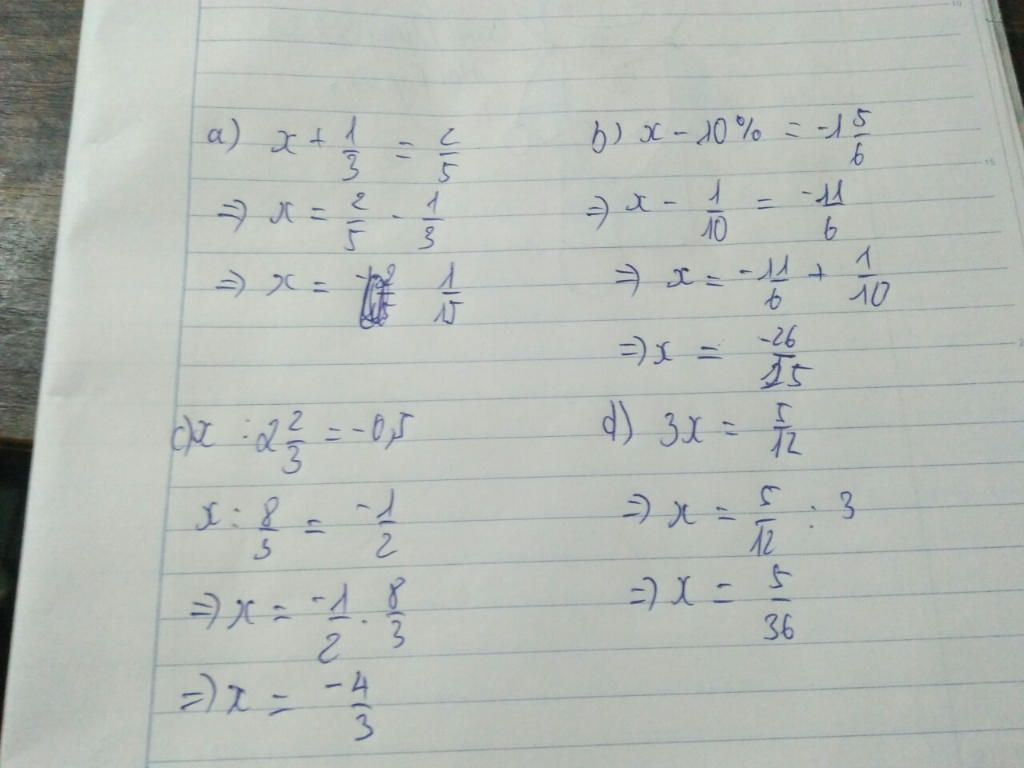 a) x + 1/3 = 2/5
=> x = 2/5 - 1/3
=> x = 1/15
b) x - 10% = -1 5/6
=> x - 1/10 = -11/6
=> x = -11/6 + 1/10
=> x = -26/15
c) x : 2 2/3 = -0,5
x : 8/3 = -1/2
=> x = -1/2 . 8/3
=> x = -4/3
d) 3x = 5/12
=> x = 5/12 : 3
=> x = 5/36